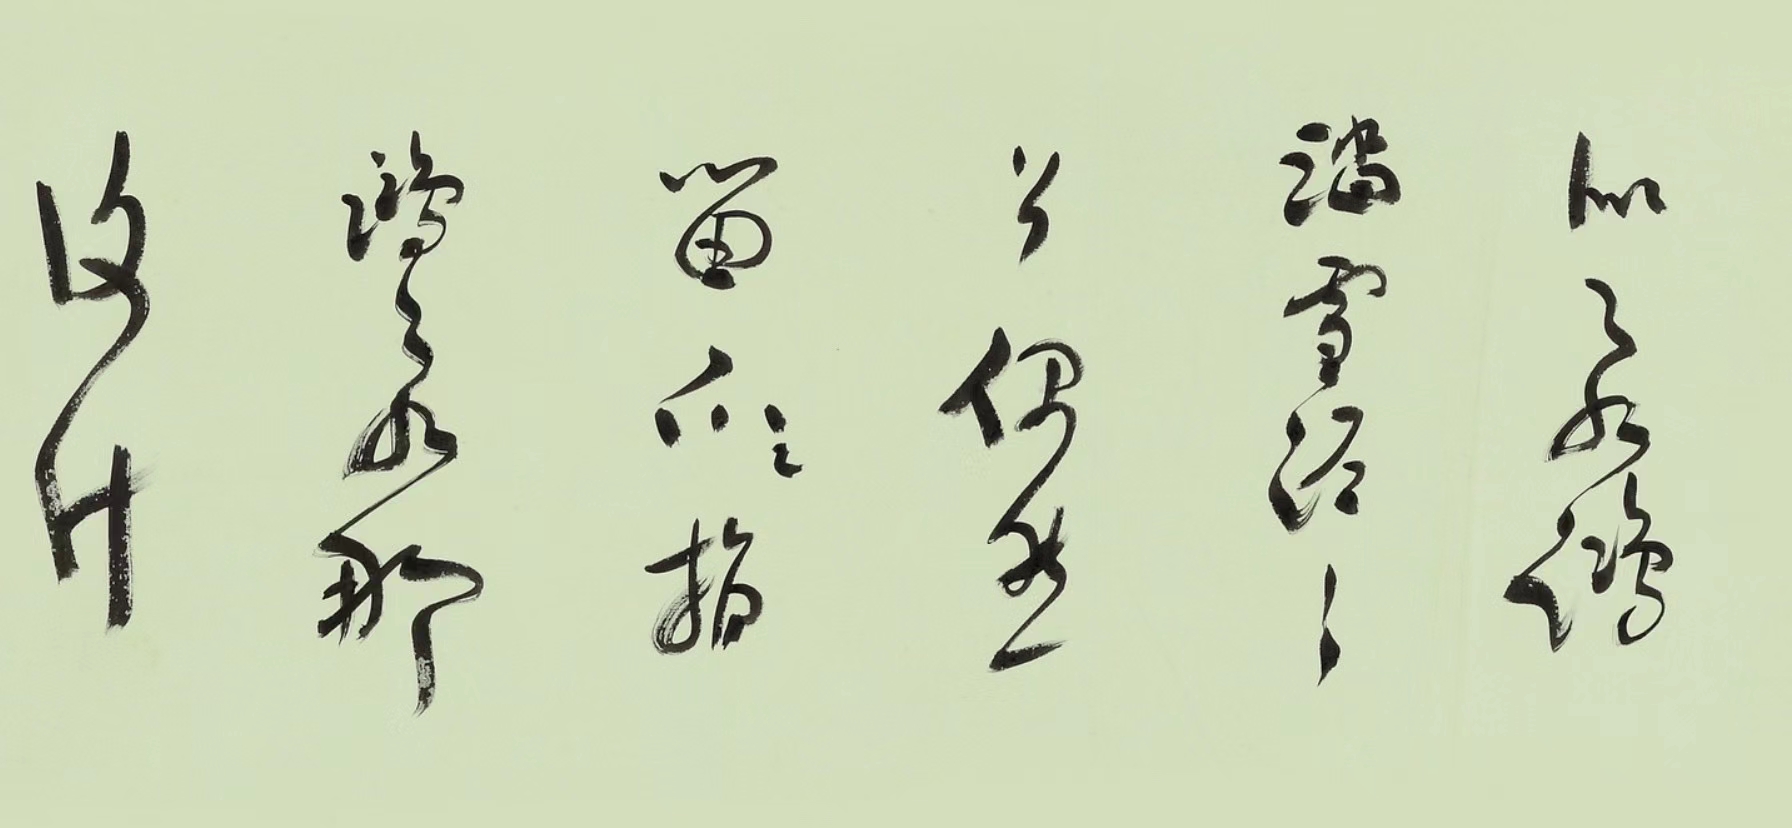 似飞鸿
踏雪泥〻
上偶然
留爪指
鸿飞那
復计